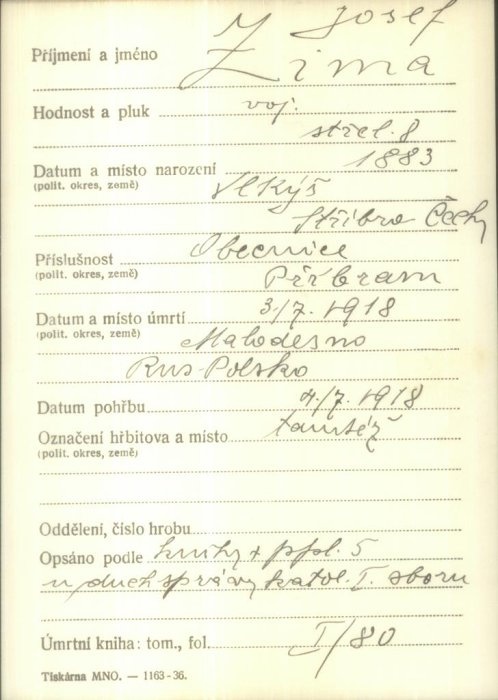 Josef
Příjmení a jméno Zima
Hodnost a pluk voj.
střel. 8
Datum a místo narození 1883
(polit. okres, země) Vlkýš
Stříbro Čechy
Příslušnost Obecnice
(polit. okres, země) Příbram
Datum a místo úmrtí 3./7. 1918
(polit. okres, země) Malodesno
Rus-Polsko
Datum pohřbu 4./7. 1918
Označení hřbitova a místo tamtéž
(polit. okres, země)
Oddělení, číslo hrobu
Opsáno podle knihy + ppl. 5
u duch správy katol. I. sboru
Úmrtní kniha: tom., fol. I/80
Tiskárna MNO. — 1163-36.